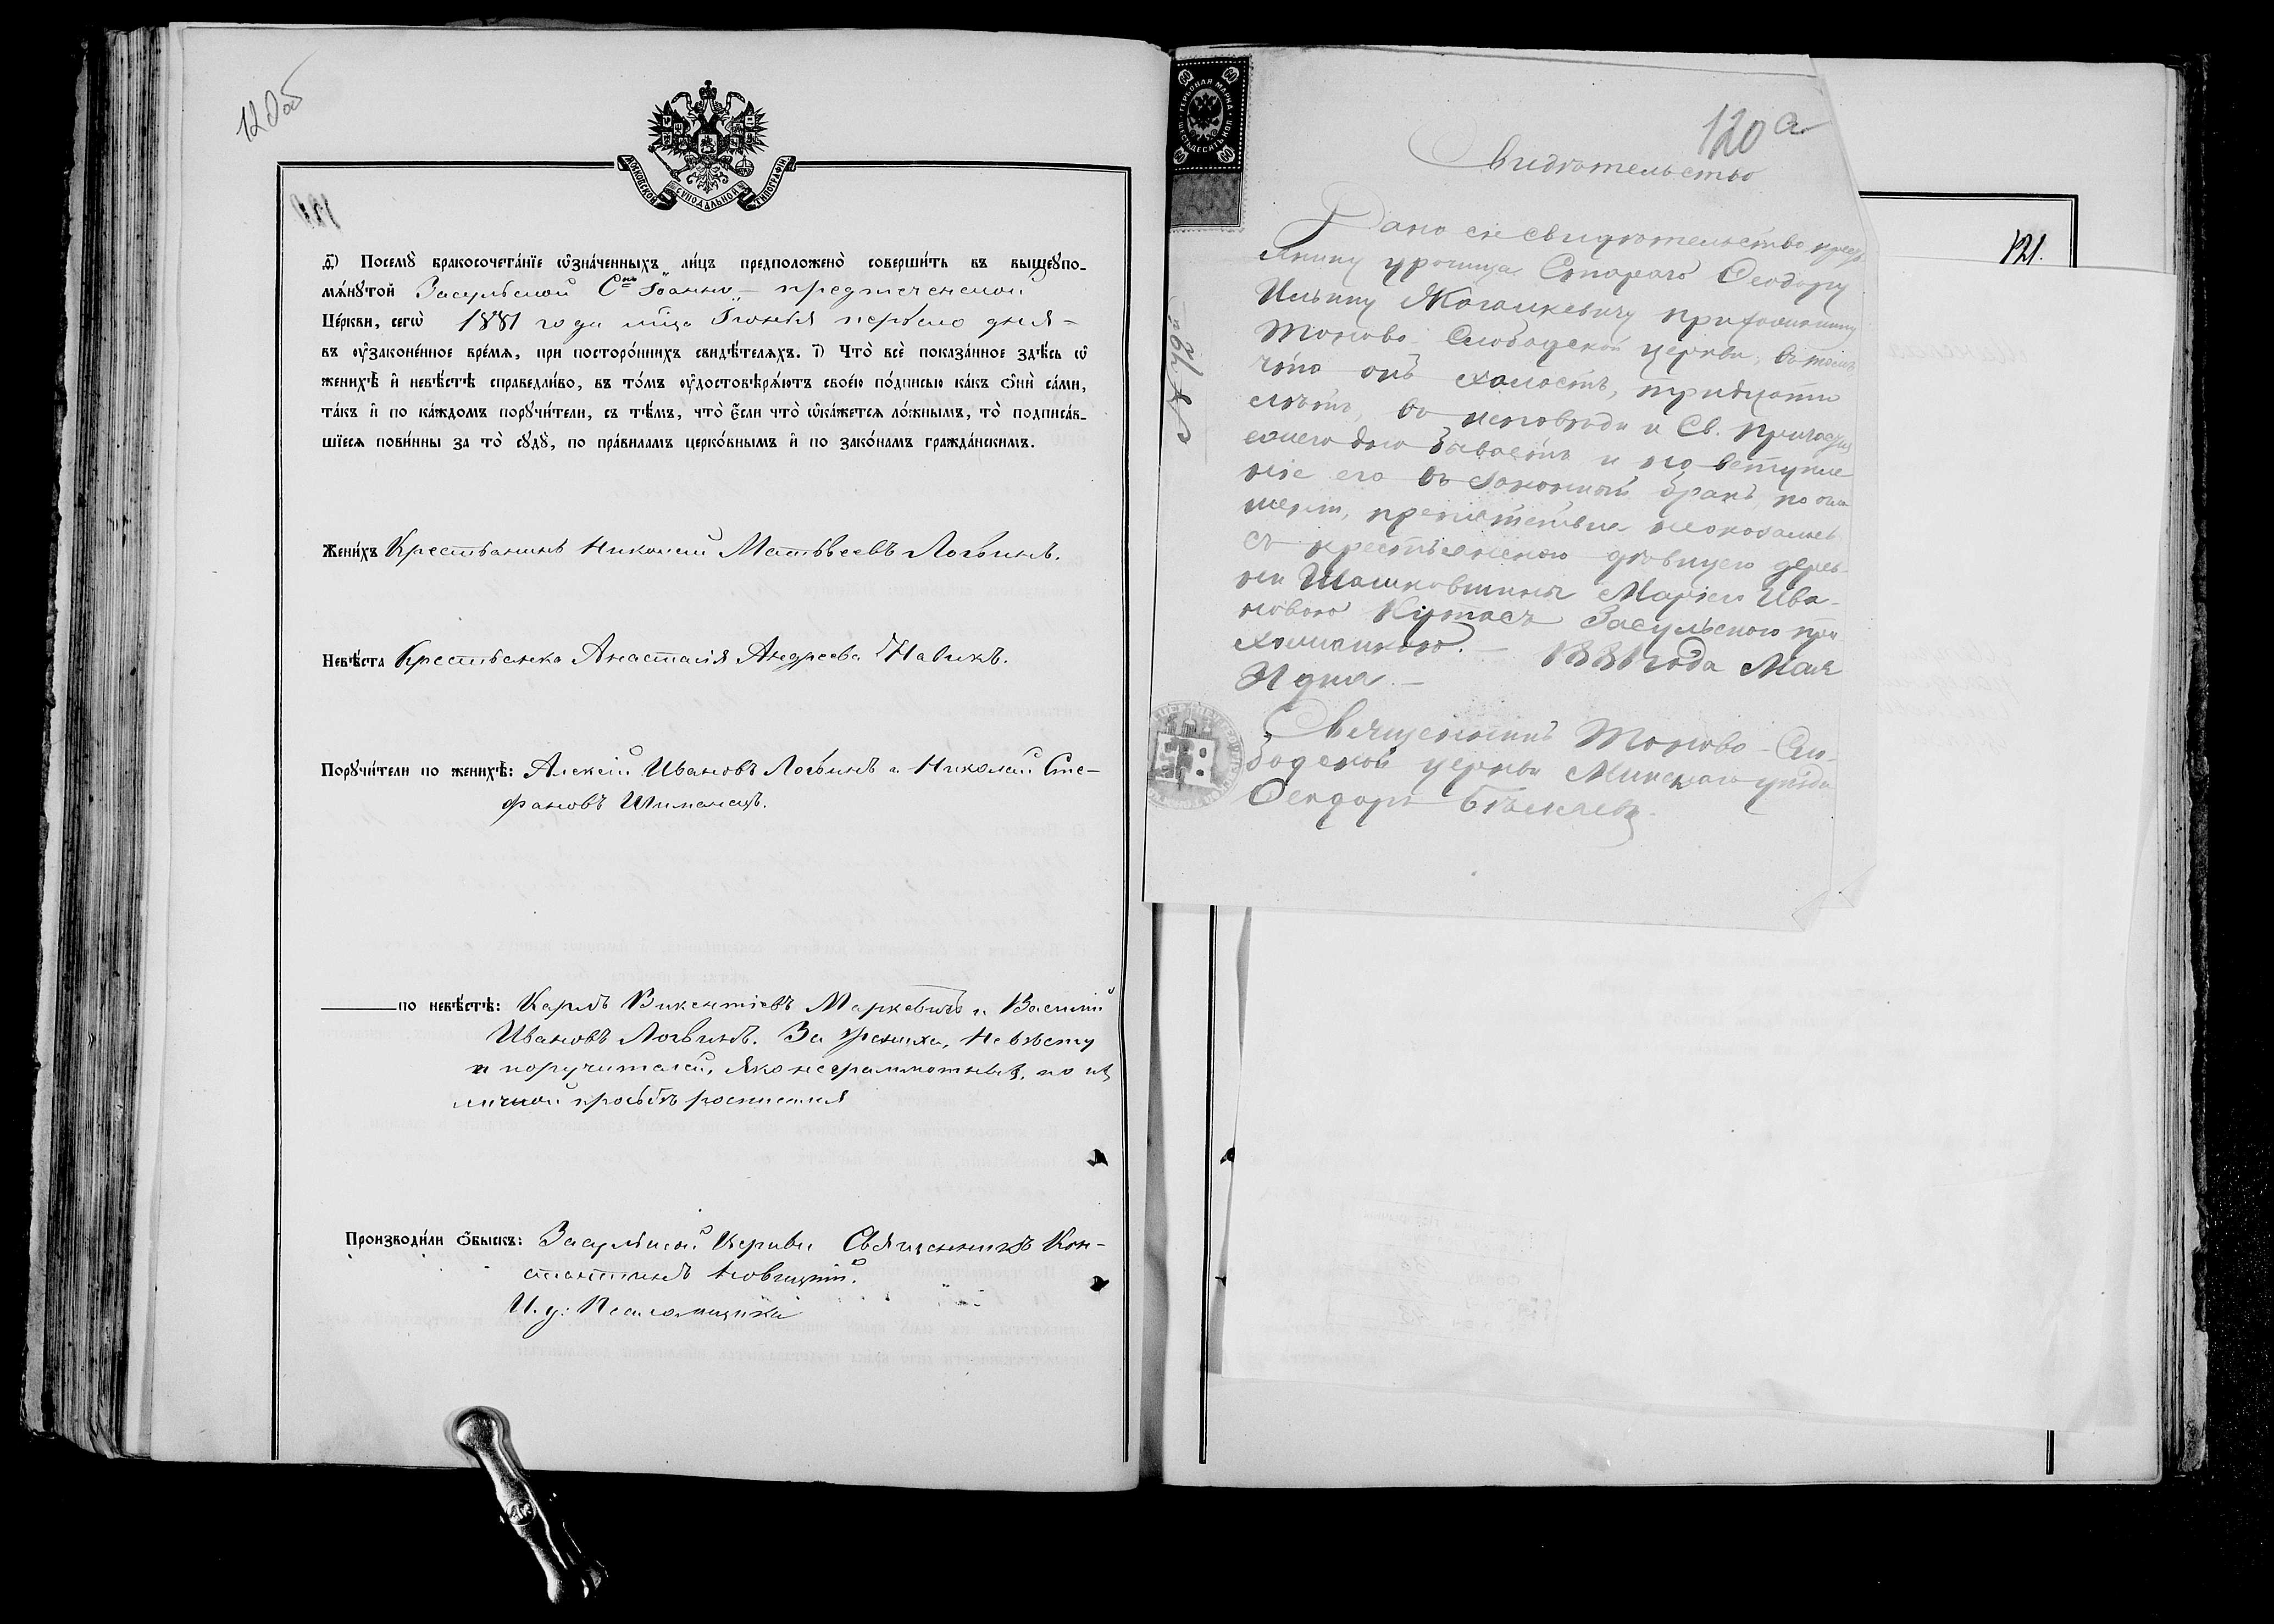 120об
МОСКОВСКОЙ СѴНОДАЛЬНОЙ ТИПОГРАФІИ
Посемꙋ̀ бракосочета́нїе ѡ҆зна́ченныхъ ли́цъ предположено̀ соверши́ть въ вышеꙋпо-
мѧ́нꙋтой Засульской Св. Іоанно-предтеченской
Це́ркви, сегѡ̀ 1881 года мца Іюня перваго дня
въ ᲂу҆законе́нное вре́мѧ, при посторо́ннихъ свидѣ́телѧхъ. 7) Что̀ всѐ показа́нное здѣ́сь ѡ҆
женихѣ̀ и҆ невѣ́стѣ справедли́во, въ то́мъ ᲂу҆достовѣрѧ́ютъ свое́ю по́дписью ка́къ ѻ҆нѝ са́ми,
та́къ и҆ по ка́ждомъ порꙋчи́тели, съ тѣ́мъ, что̀ є҆́сли что̀ ѡ҆ка́жетсѧ ло́жнымъ, то̀ подписа́в-
шїесѧ пови́нны за то̀ сꙋдꙋ̀, по пра́виламъ церко́внымъ и҆ по зако́намъ гражда́нскимъ.
Жени́хъ Крестьянинъ Николай Матвѣевъ Логвинъ.
Невѣ́ста Крестьянка Анастасія Андреева Навикъ.
Порꙋчи́тели по женихѣ̀: Алексѣй Ивановъ Логвинъ и Николай Сте-
фановъ Шиманецъ.
по невѣ́стѣ: Карлъ Викентіевъ Маркевичъ и Василій
Ивановъ Логвинъ. За жениха, невѣсту
и поручителей, яко неграмотныхъ, по ихъ
личной просьбѣ росписался
Производи́ли ѻ҆́быскъ: Засульской Церкви Священникъ Кон-
стантинъ Новицкій.
И. д. Псаломщика
ГЕРБОВАЯ МАРКА
ШЕСТЬДЕСЯТЪ КОП.
60
120 а
Свидѣтельство
Дано сіе свидѣтельство кресть
янину урочища Стараго Ѳеодору
Ильину Жогалкевичу прихожанину
Тоново-Слободской церкви, въ томъ
что онъ холостъ, тридцати
лѣтъ, въ исповѣди и Св. причастія
ежегодно бываетъ и ко вступле
ніе его въ законный бракъ, по
препятствія неоказалось
съ крестьянскою дѣвицею дерев-
ни Шашковщины Маріею Ива-
новою Кутасъ Засульскою при
хожанкою. — 1881 года Мая
31 дня. —
Священникъ Тоново-Сло-
бодской церкви Минскаго уѣзда
Ѳеодоръ Бѣляевъ.
121.